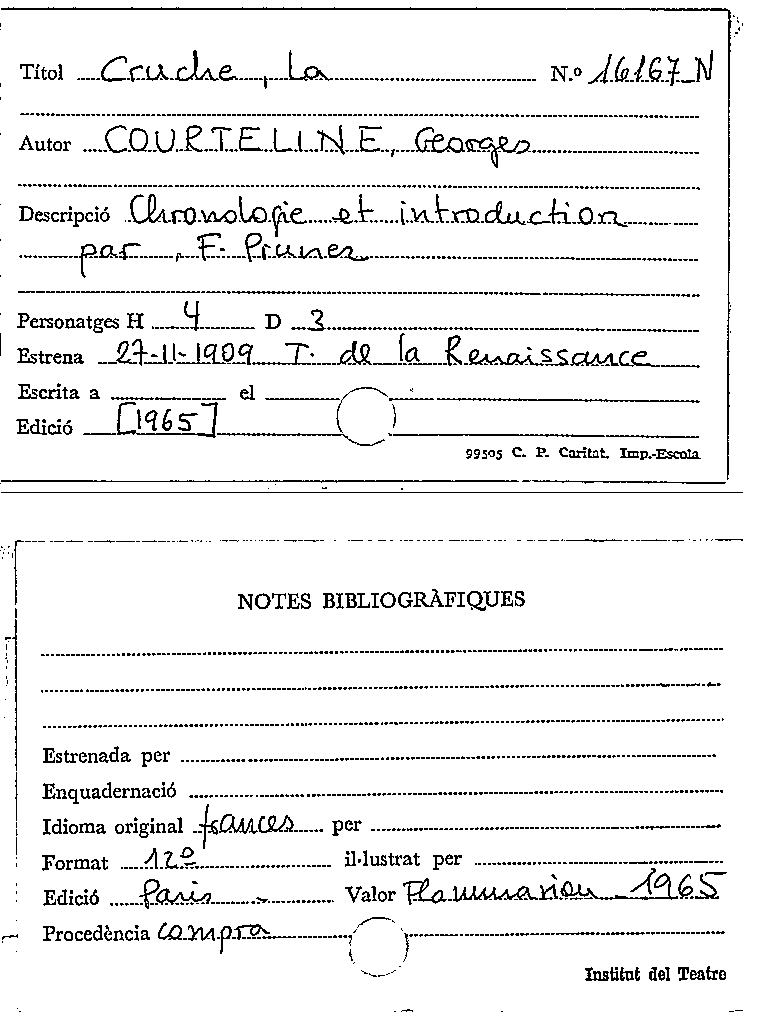 Títol Cruche, La N.º 16167 N
Autor COURTELINE, Georges
Descripció Chronologie et introduction
par, F. Pruner
Personatges H 4 D 3
Estrena 27-11-1909 T. de la Renaissance
Escrita a el
Edició [1965]
99505 C. P. Caritat. Imp.-Escola
NOTES BIBLIOGRÀFIQUES
Estrenada per
Enquadernació
Idioma original frances per
Format 12º il·lustrat per
Edició Paris - Valor Flammarion 1965
Procedència compra
Institut del Teatre